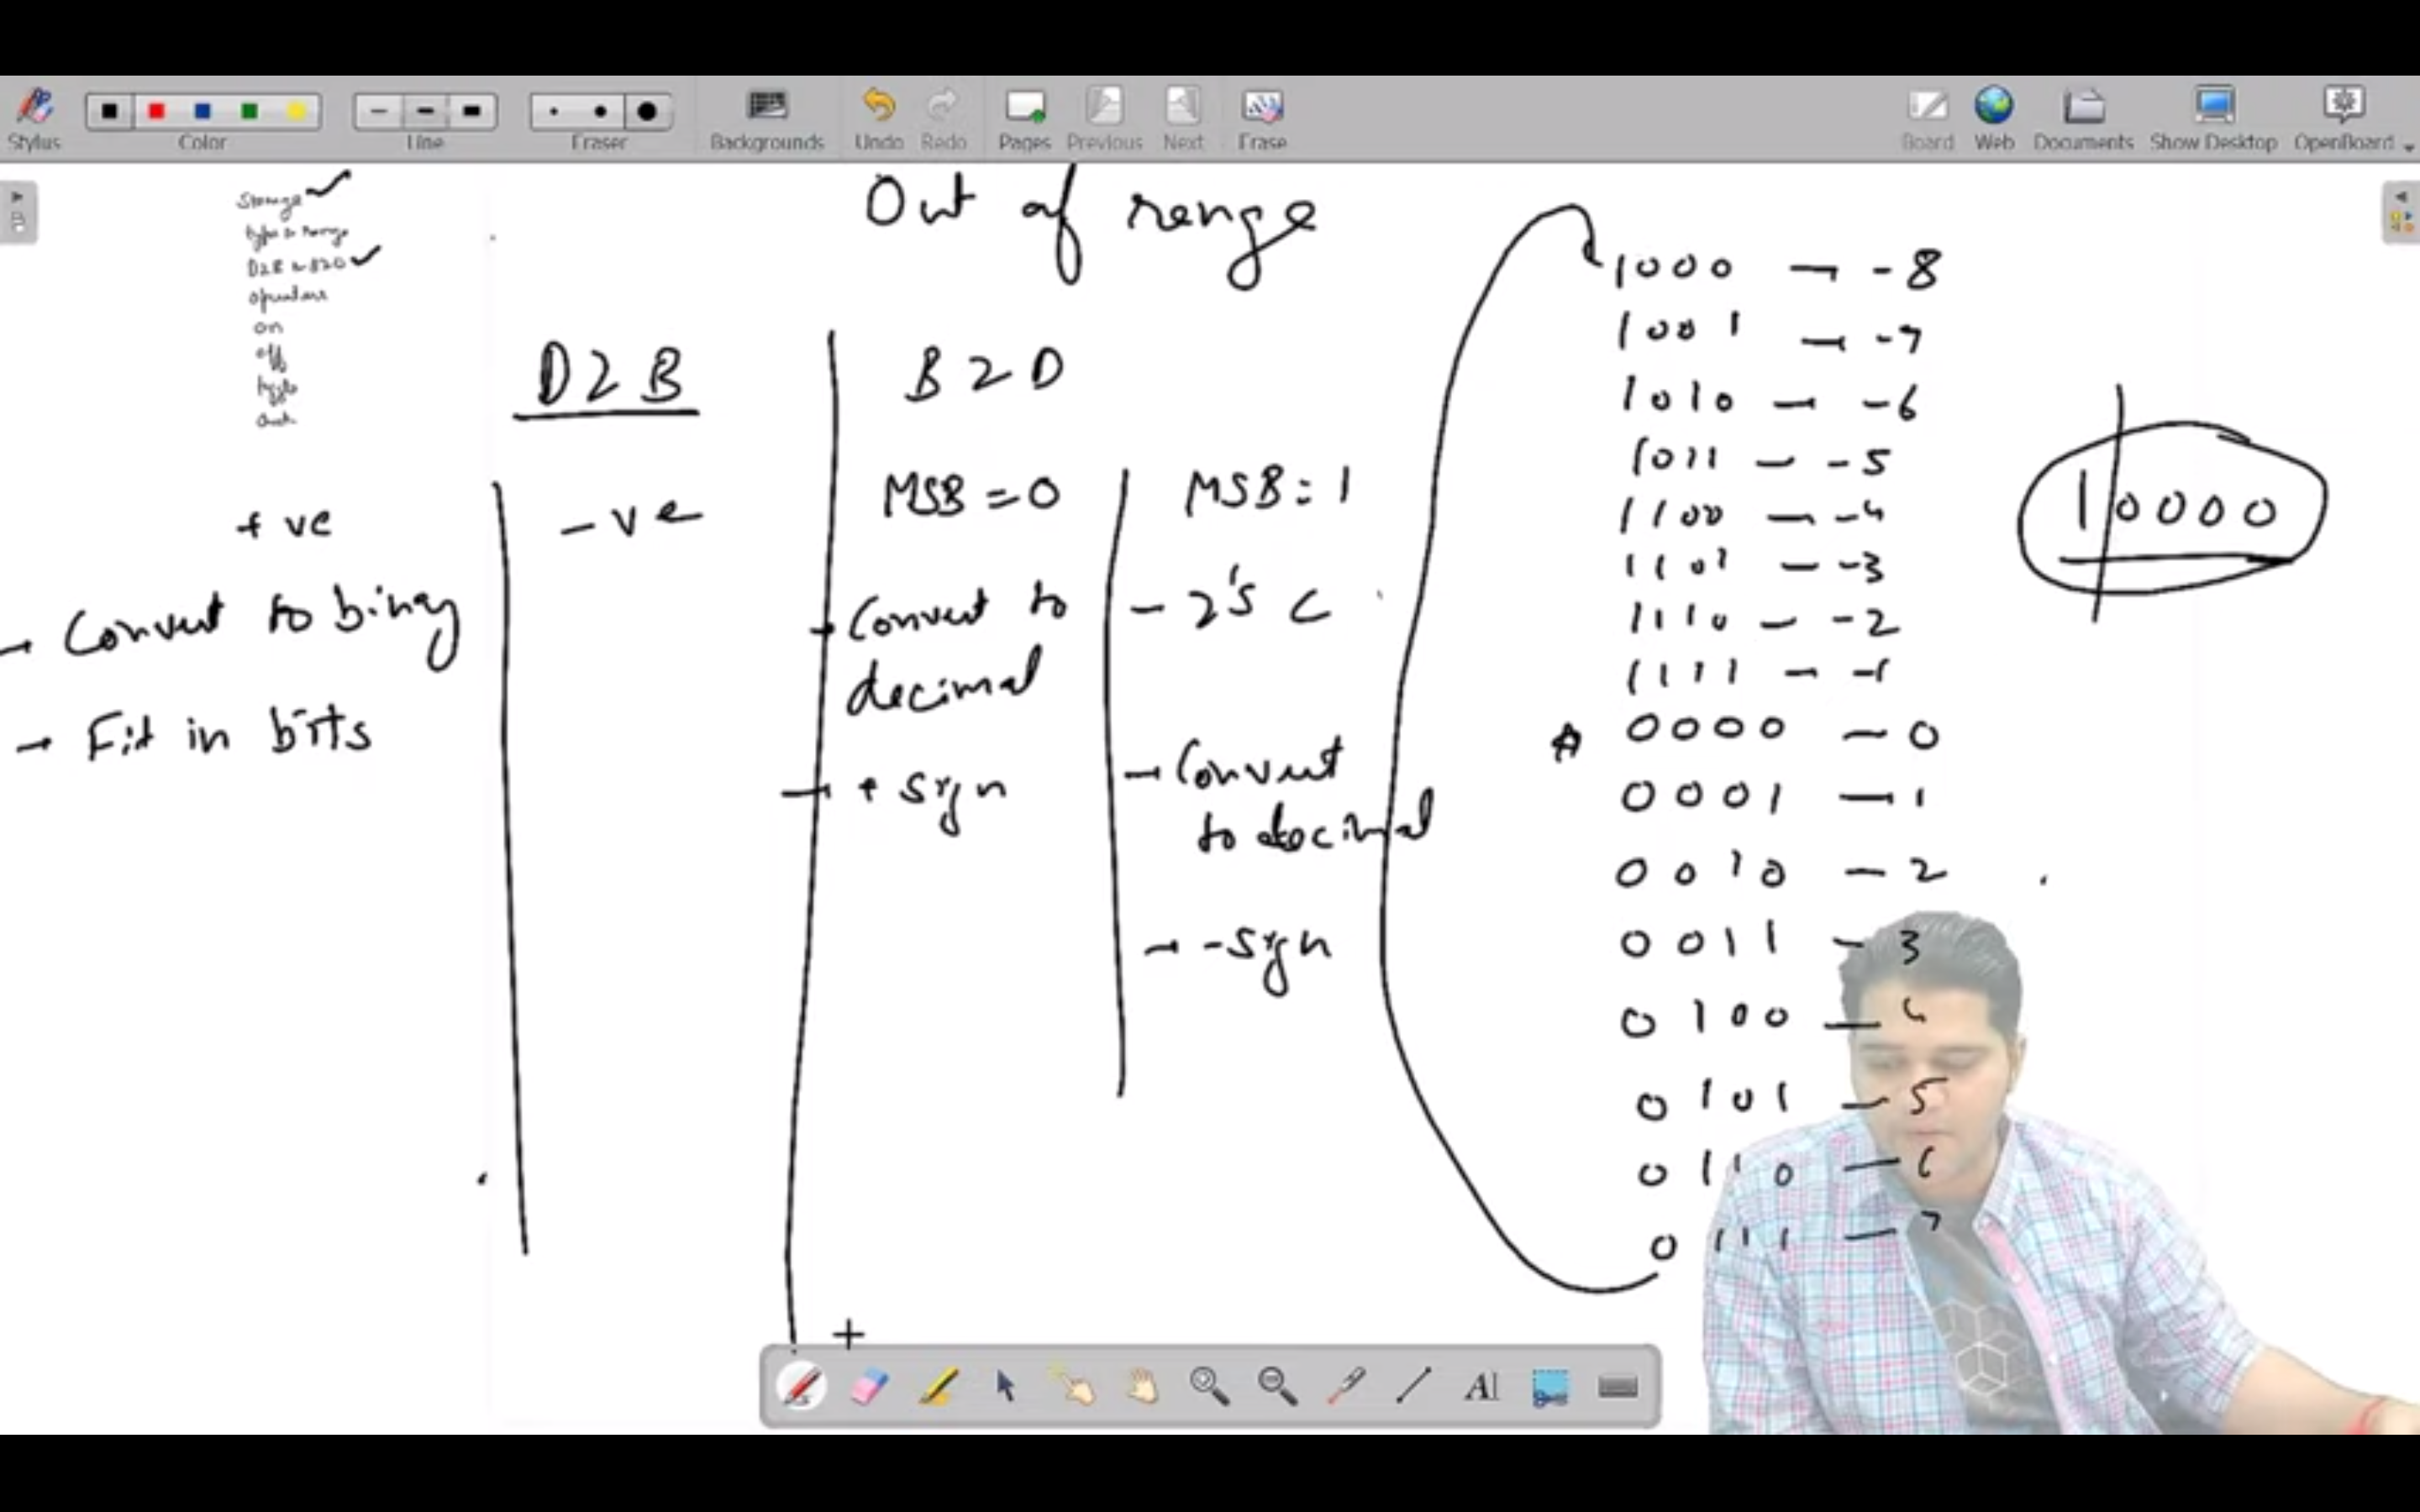 Stylus
Color
Line
Eraser
Backgrounds
Undo
Redo
Pages
Previous
Next
Erase
Board
Web
Documents
Show Desktop
OpenBoard
B
Storage
type & range
D2B & B2D
operators
on
off
Out of range
D2B
+ve
-ve
- Convert to binary
- Fit in bits
B2D
MSB = 0
- Convert to
decimal
- + sign
MSB = 1
- 2's C
- Convert
to decimal
- -sign
1000 - -8
1001 - -7
1010 - -6
1011 - -5
1100 - -4
1101 - -3
1110 - -2
1111 - -1
0000 - 0
0001 - 1
0010 - 2
0011 - 3
0100 - 4
0101 - 5
0110 - 6
0111 - 7
10000
AI